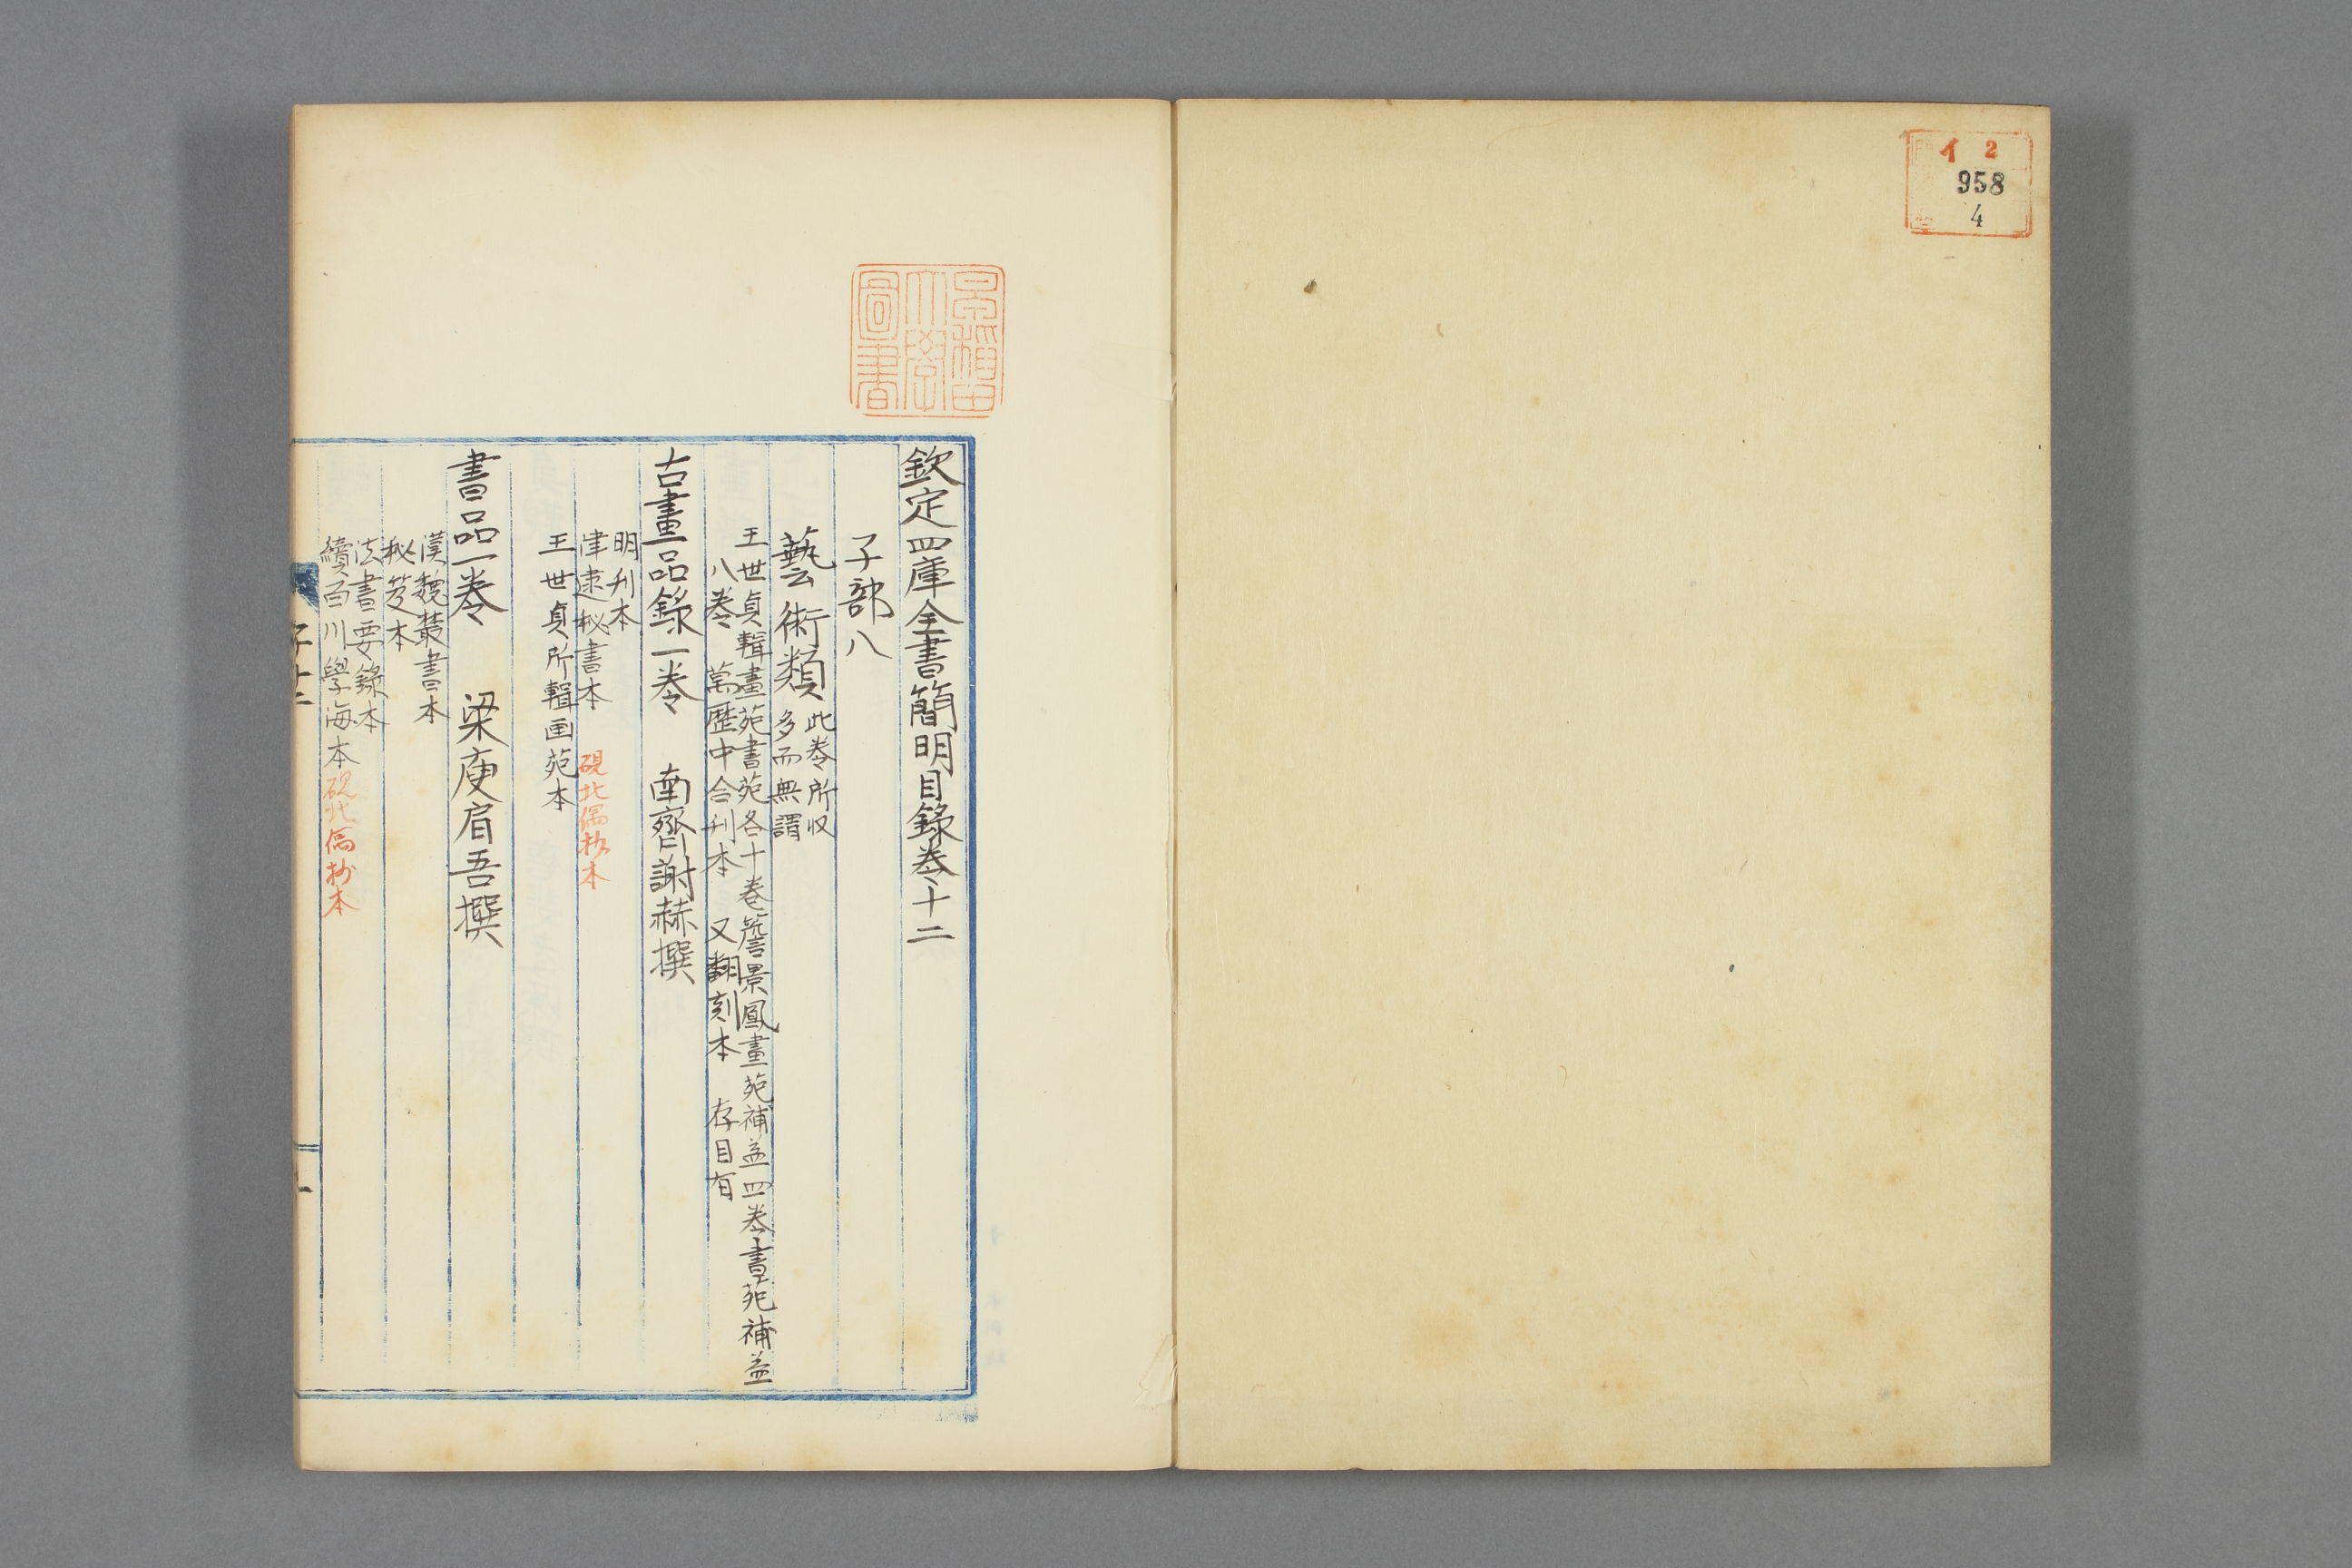 イ 2
958
4
早稲田
大學
圖書
欽定四庫全書簡明目錄卷十二
子部八
藝術類 此卷所収
多而無謂
王世貞輯畫苑書苑各十卷詹景鳳畫苑補益四卷書苑補益
八卷 萬歷中合刊本 又翻刻本 存目有
古畫品錄一卷 南齊謝赫撰
明刊本
津逮秘書本 硯北偶抄本
王世貞所輯画苑本
書品一卷 梁庾肩吾撰
漢魏叢書本
秘笈本
法書要錄本
續百川學海本 硯北偶抄本
子十二
一